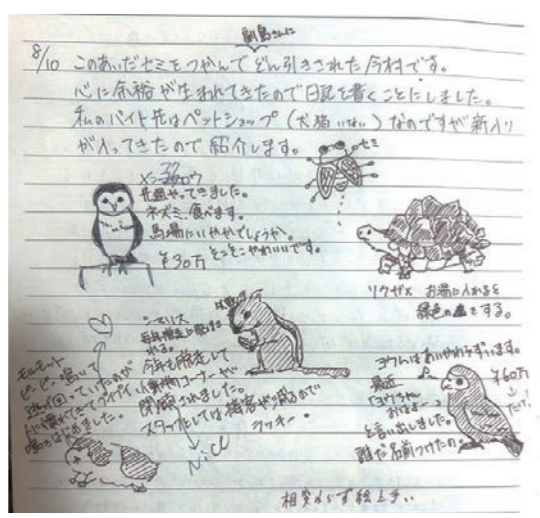 副島さんに
8/10 このあいだセミをつかんでどん引きされた今村です。
心に余裕が生まれてきたので日記を書くことにしました。
私のバイト先はペットショップ(犬猫いない)なのですが新入り
が入ってきたので紹介します。
セミ
メンフクロウ
先週やってきました。
ネズミ、食べます。
¥30万
そこそこかわいいです。
リクガメ お湯に入れると
緑色の
をする。
シマリス
毎年
今年も脱走して
小動物コーナーが
閉鎖されました。
スタッフとしては接客が減るので
ラッキー。
Nice
モルモット
ピーピー鳴いて
逃げ回っていたのが
人に慣れてきて
鳴きはじめました。
ヨウムはあいかわらずいます。
¥60万
最近
「ヨウちゃん
おはよー」
と言い出しました。
誰だ名前つけたの。
相変わらず絵上手い